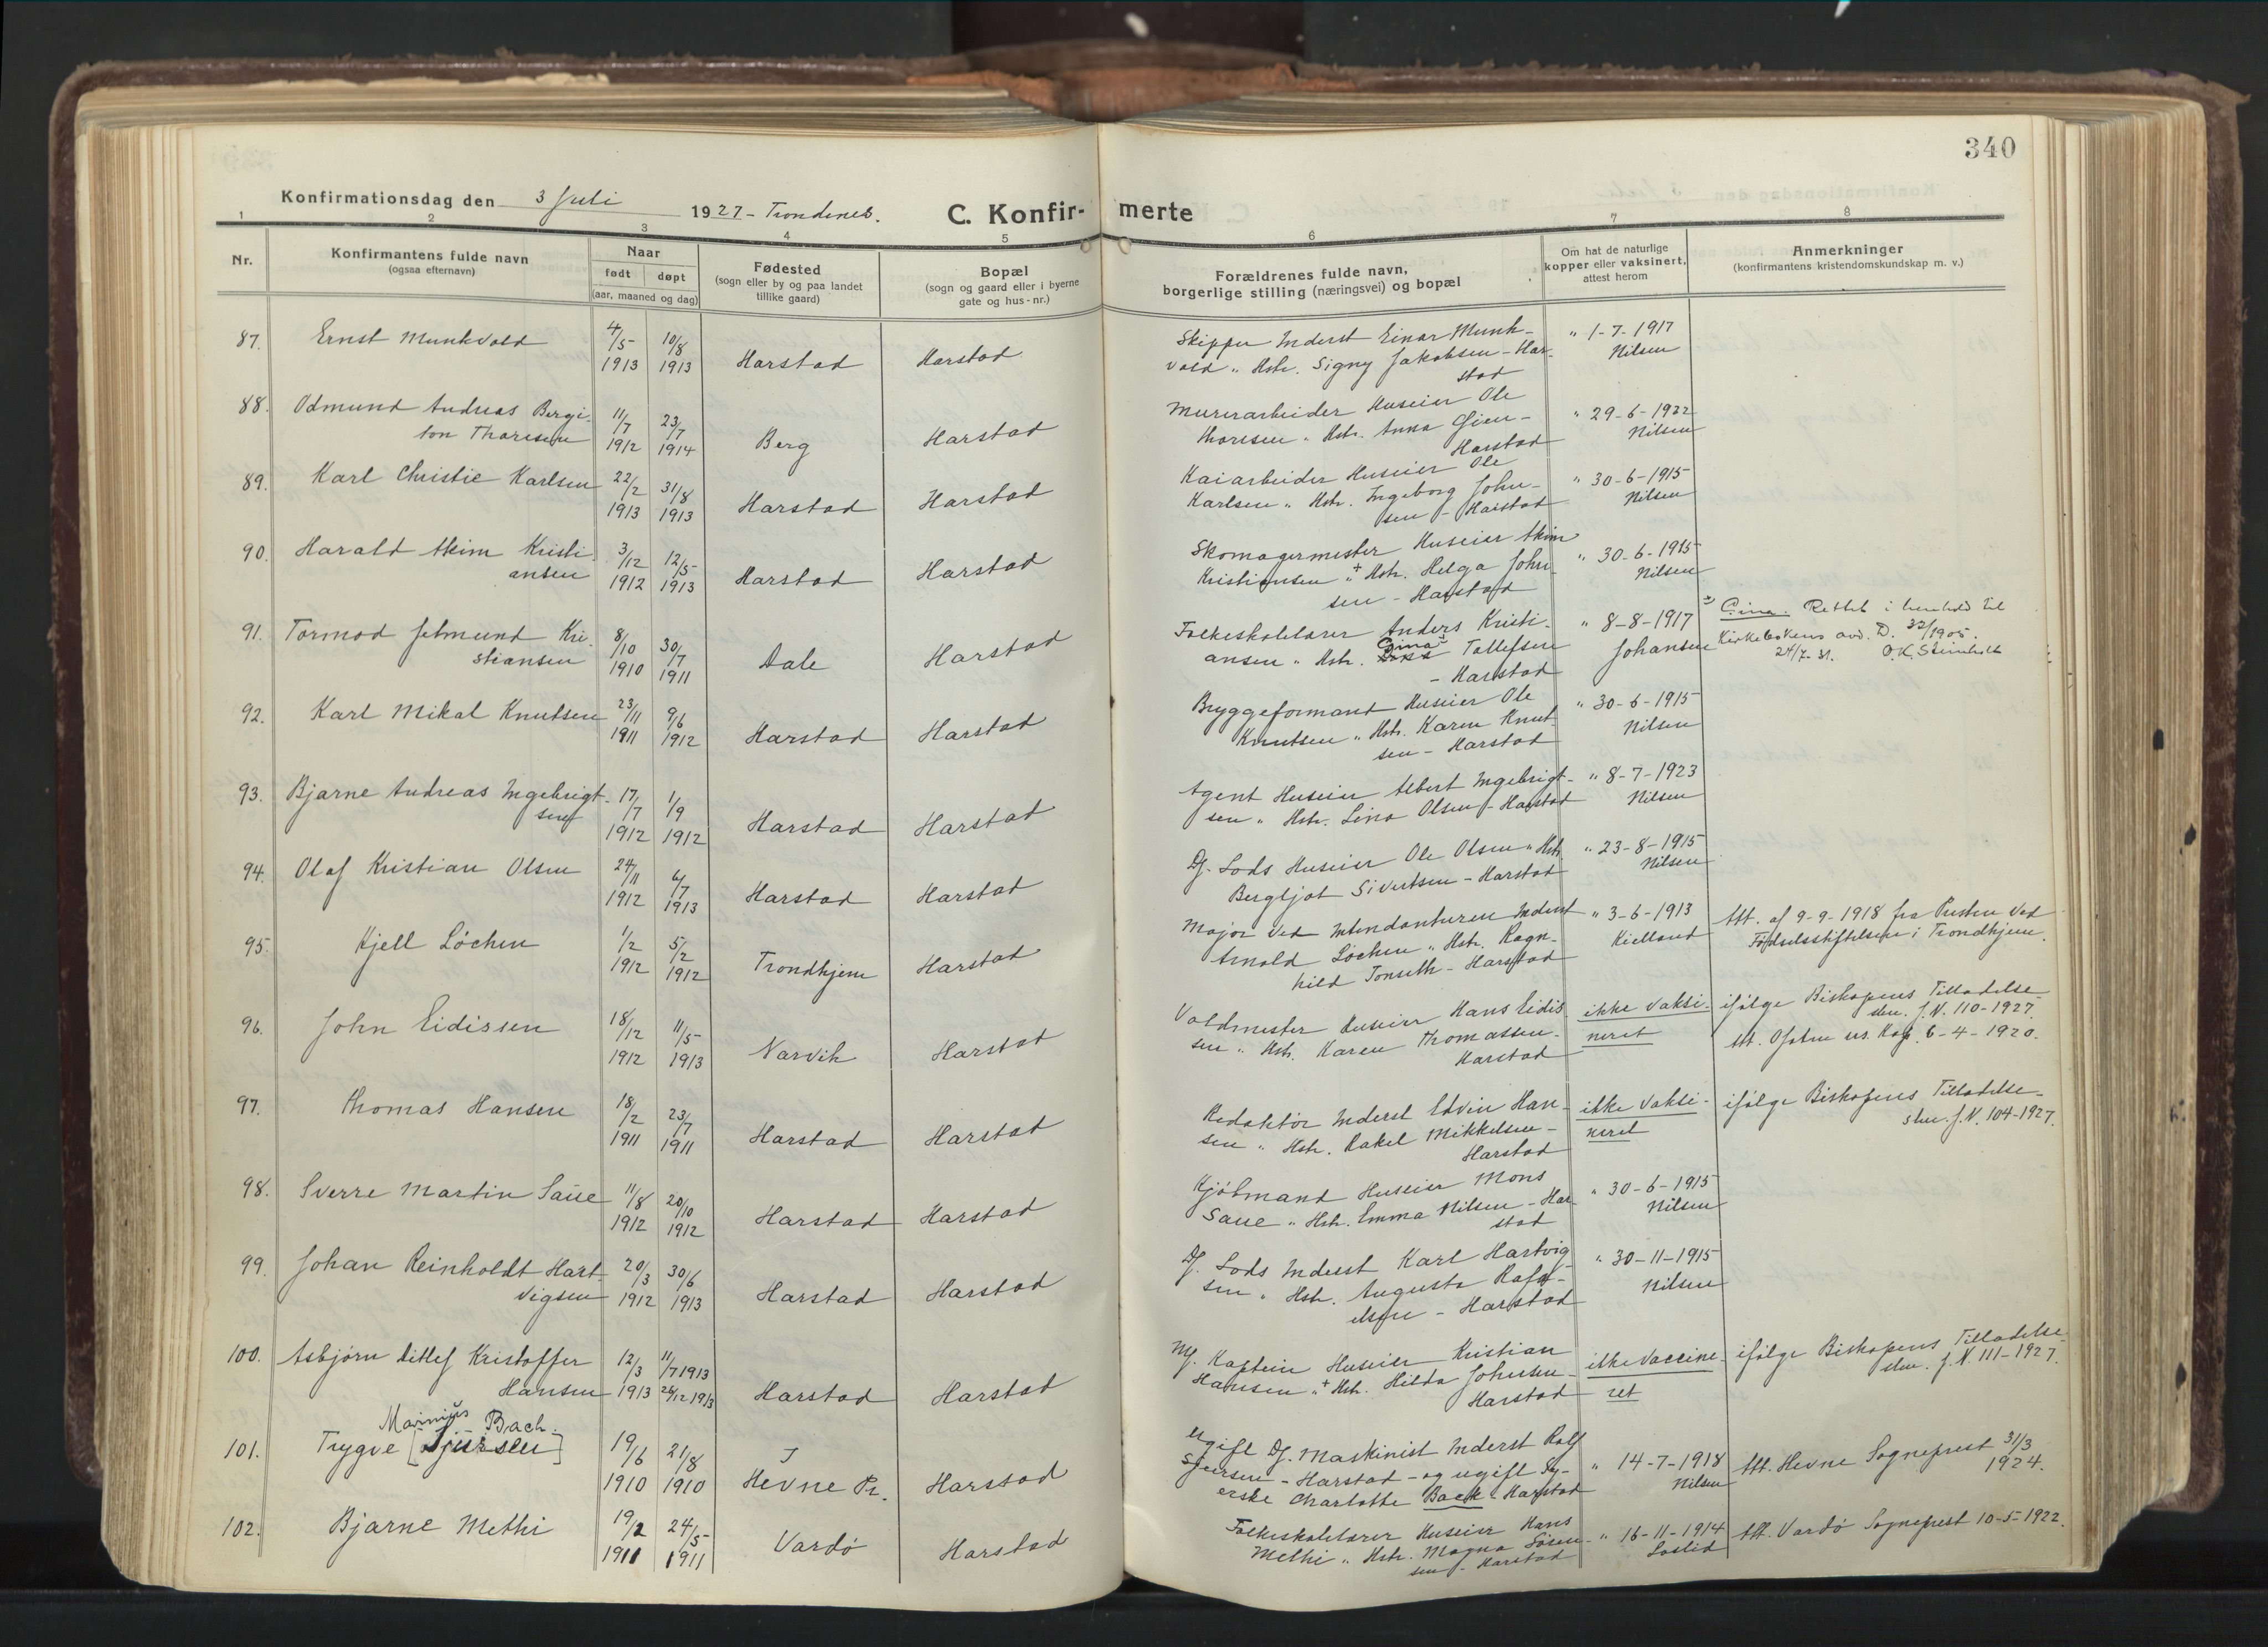 340
Konfirmationsdag den 3 Juli 1927 - Trondenes.
C. Konfir- merte
1 2 3 4 5 6 7 8
Nr.
Konfirmantens fulde navn
(ogsaa efternavn)
Naar
født døpt
(aar, maaned og dag)
Fødested
(sogn eller by og paa landet
tillike gaard)
Bopæl
(sogn og gaard eller i byerne
gate og hus-nr.)
Forældrenes fulde navn,
borgerlige stilling (næringsvei) og bopæl
Om hat de naturlige
kopper eller vaksinert,
attest herom
Anmerkninger
(konfirmantens kristendomskundskap m. v.)
87. Ernst Munkvold 4/5 1913 10/8 1913 Harstad Harstad
Skipper Inderst Einar Munk-
vold " Hstr. Signy Jakobsen - Har-
stad
" 1-7-1917
Nilsen
88. Odmund Andreas Bergi-
ton Thoresen 11/7 1912 23/7 1914 Berg Harstad
Murerarbeider Huseier Ole
Thoresen " Hstr. Anna
Harstad
" 29-6-1922
Nilsen
89. Karl Christie Karlsen 22/2 1913 31/8 1913 Harstad Harstad
Kaiarbeider Huseier Ole
Karlsen " Hstr. Ingeborg John-
sen - Harstad
" 30-6-1915
Nilsen
90. Harald Akim Kristi-
ansen 3/12 1912 12/5 1913 Harstad Harstad
Skomagermester Huseier Akim
Kristiansen " + Hstr. Helga John-
sen - Harstad
" 30-6-1915
Nilsen
91. Tormod Jetmund Kri-
stiansen 8/10 1910 30/7 1911 Dale Harstad
Folkeskolelærer Anders Kristi-
Gina x
ansen " Hstr. Tollefsen
- Harstad
" 8-8-1917
Johansen
x) Gina. Rettet i henhold til
Kirkebokens avd. D. 32/1905.
24/7-31. O.K. Steinholt
92. Karl Mikal Knutsen 23/11 1911 9/6 1912 Harstad Harstad
Bryggeformand Huseier Ole
Knutsen " Hstr. Karen Knut-
sen - Harstad
" 30-6-1915
Nilsen
93. Bjarne Andreas Ingebrigt-
sen 17/7 1912 1/9 1912 Harstad Harstad
Agent Huseier Albert Ingebrigt-
sen " Hstr. Lina Olsen - Harstad
" 8-7-1923
Nilsen
94. Olaf Kristian Olsen 24/11 1912 6/7 1913 Harstad Harstad
Df. Lods Huseier Ole Olsen " Hstr.
Bergljot Sivertsen - Harstad
" 23-8-1915
Nilsen
95. Kjell Løchen 1/2 1912 5/2 1912 Trondhjem Harstad
Major ved Intendanturen Inderst
Arnold Løchen " Hstr. Ragn-
hild Tonseth - Harstad
" 3-6-1913
Kielland
Att. af 9-9-1918 fra Presten ved
Fødselsstiftelsen i Trondhjem.
96. John Eidissen 18/12 1912 11/5 1913 Narvik Harstad
Voldmester Huseier Hans Eidis-
sen " Hstr. Karen Thomassen -
Harstad
ikke vaksi-
neret
ifølge Biskopens Tilladelse
skr. J. N. 110-1927.
Att. Ofoten res. Kap. 6-4-1920.
97. Thomas Hansen 18/2 1911 23/7 1911 Harstad Harstad
Redaktør Inderst Edvin Han-
sen " Hstr. Rakel Mikkelsen -
Harstad
ikke vaksi-
neret
ifølge Biskopens Tilladelse
skr. J. N. 104-1927.
98. Sverre Martin Saue 11/8 1912 20/10 1912 Harstad Harstad
Kjøbmand Huseier Mons
Saue " Hstr. Emma Nilsen - Har-
stad
" 30-6-1915
Nilsen
99. Johan Reinholdt Hart-
vigsen 20/3 1912 30/6 1913 Harstad Harstad
Df. Lods Inderst Karl Hartvig-
sen " Hstr. Augusta Rafa-
elsen - Harstad
" 30-11-1915
Nilsen
100. Asbjørn Ditlef Kristoffer
Hansen 12/3 1913 11/7 1913 26/12 1913 Harstad Harstad
Kaptein Huseier Kristian
Hansen " + Hstr. Hilda Johnsen -
Harstad
ikke vaccine-
ret
ifølge Biskopens Tilladelse
skr. J. N. 111-1927.
Marinius Bach.
101. Trygve [Sjursen] 19/6 1910 21/8 1910 Hevne Pr. Harstad
Ugift Df. Maskinist Inderst Rolf
Sjursen - Harstad - og ugift Sy-
erske Charlotte Back - Harstad
" 14-7-1918
Nilsen
Att. Hevne Sogneprest 31/3
1924.
102. Bjarne Methi 19/2 1911 24/5 1911 Vardø Harstad
Folkeskolelærer Huseier Hans
Methi " Hstr. Magna
sen - Harstad
" 16-11-1914
Att. Vardø Sogneprest 10-5-1922.